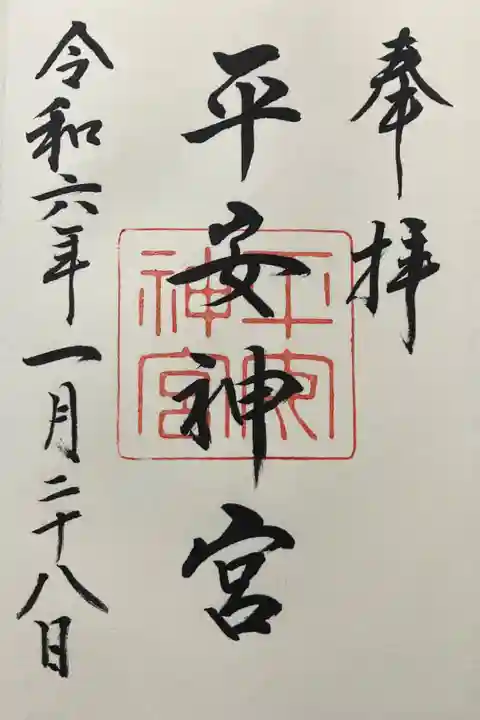 奉拝
平安神宮
平安神宮
令和六年一月二十八日